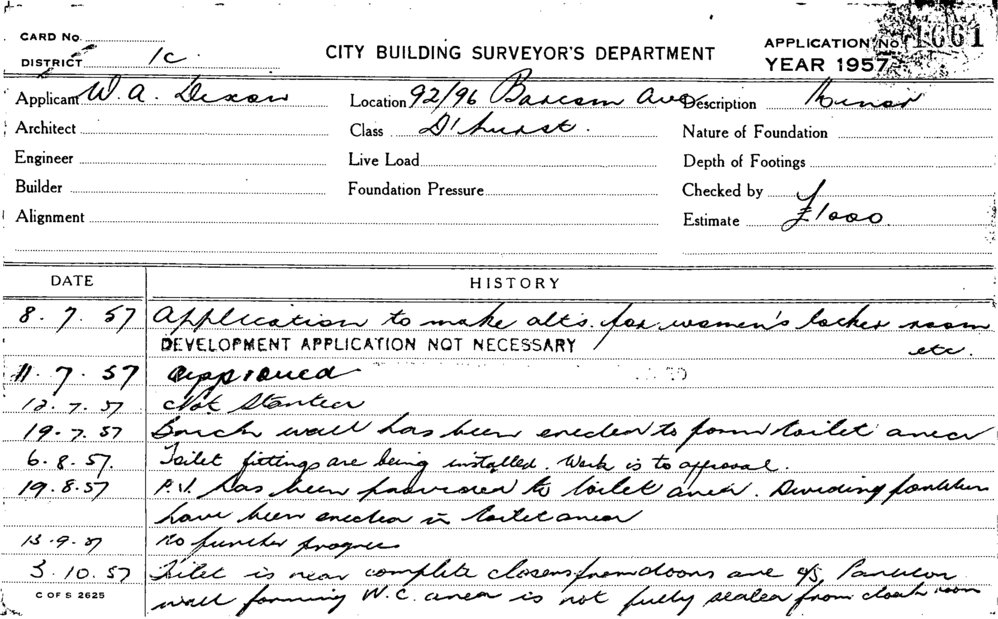 CARD No.
DISTRICT 1C
CITY BUILDING SURVEYOR'S DEPARTMENT
APPLICATION No. 1661
YEAR 1957
Applicant W. A. Dixon Location 92/96 Barcom Ave Description Minor
Architect Class D'hurst. Nature of Foundation
Engineer Live Load Depth of Footings
Builder Foundation Pressure Checked by
Alignment Estimate £1000
DATE HISTORY
8. 7. 57 Application to make alts. for women's locker room
DEVELOPMENT APPLICATION NOT NECESSARY etc.
11. 7. 57 approved
12. 7. 57 Not Started
19. 7. 57 Brick wall has been erected to form toilet area
6. 8. 57. Toilet fittings are being installed. Work is to approval.
19. 8. 57 P.V. has been provided to toilet area. Dividing partitions
have been erected in toilet area
13. 9. 57 No further progress
3. 10. 57 Toilet is near complete closers from doors are Partition
C OF S 2625 wall forming W.C. area is not fully sealed from cloak room